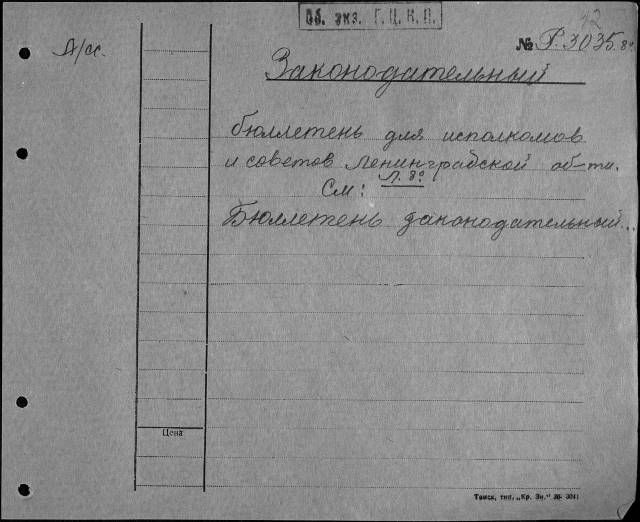 Об. экз. Г. Ц. К. П.
№ Р.3035.8°
Л/сс.
Законодательный
бюллетень для исполкомов
и советов Ленинградской об-ти.
См: Л. 8°
Бюллетень законодательный...
Цена
Томск, тип. „Кр. Зн."